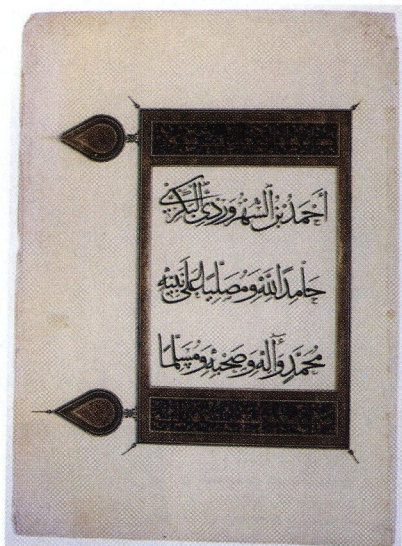 أَحْمَدُ بْنُ السُّهْرَوَرْدِيِّ الْبَكْرِيُّ
حَامِدًا لِلَّهِ وَمُصَلِّيًا عَلَى نَبِيِّهِ
مُحَمَّدٍ وَآلِهِ وَصَحْبِهِ وَمُسَلِّمًا